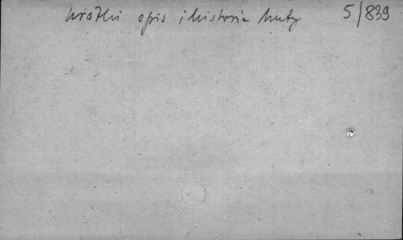 krótki opis i historia huty 5/839